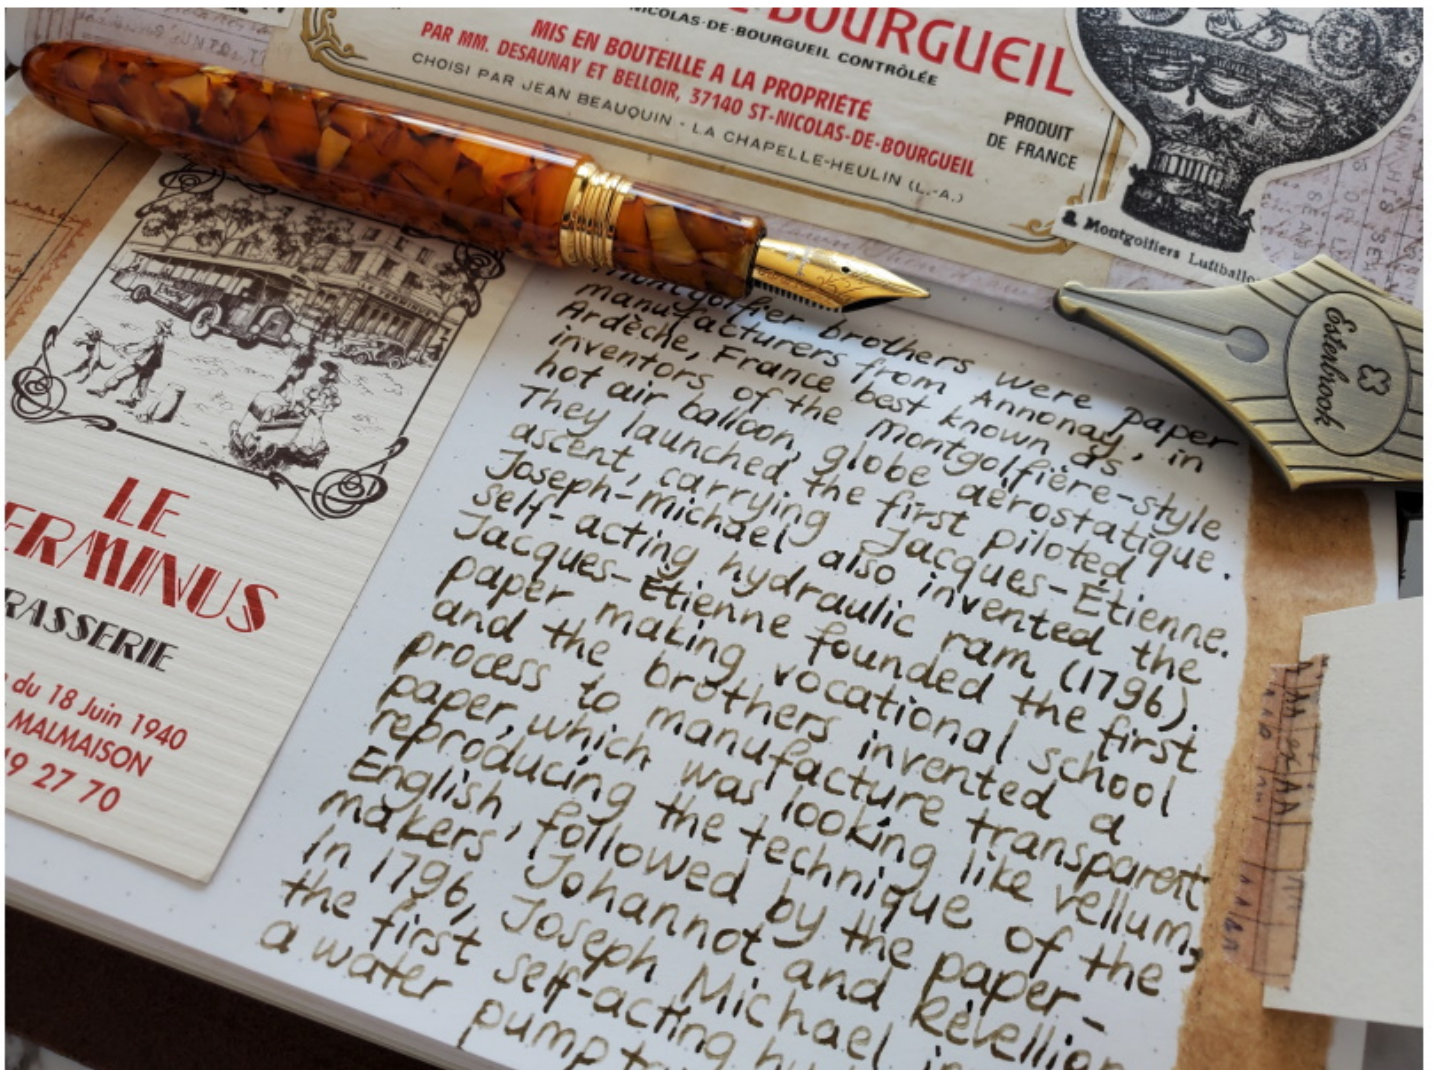 BOURGUEIL
NICOLAS-DE-BOURGUEIL CONTRÔLÉE
MIS EN BOUTEILLE A LA PROPRIÉTÉ
PAR MM. DESAUNAY ET BELLOIR, 37140 ST-NICOLAS-DE-BOURGUEIL
CHOISI PAR JEAN BEAUQUIN - LA CHAPELLE-HEULIN (L.-A.)
PRODUIT
DE FRANCE
Montgolfiers Luftballo
Esterbrook
LE
ERMINUS
RASSERIE
du 18 Juin 1940
MALMAISON
9 27 70
Montgolfier brothers were paper
manufacturers from Annonay, in
Ardèche, France best known as
inventors of the Montgolfière-style
hot air balloon, globe aérostatique.
They launched the first piloted
ascent, carrying Jacques-Étienne.
Joseph-michael also invented the
self-acting hydraulic ram (1796).
Jacques-Étienne founded the first
paper making vocational school
and the brothers invented a
process to manufacture transparent
paper, which was looking like vellum,
reproducing the technique of the
English, followed by the paper-
makers Johannot and Réveillion
In 1796, Joseph Michael in
the first self-acting hy
a water pump to